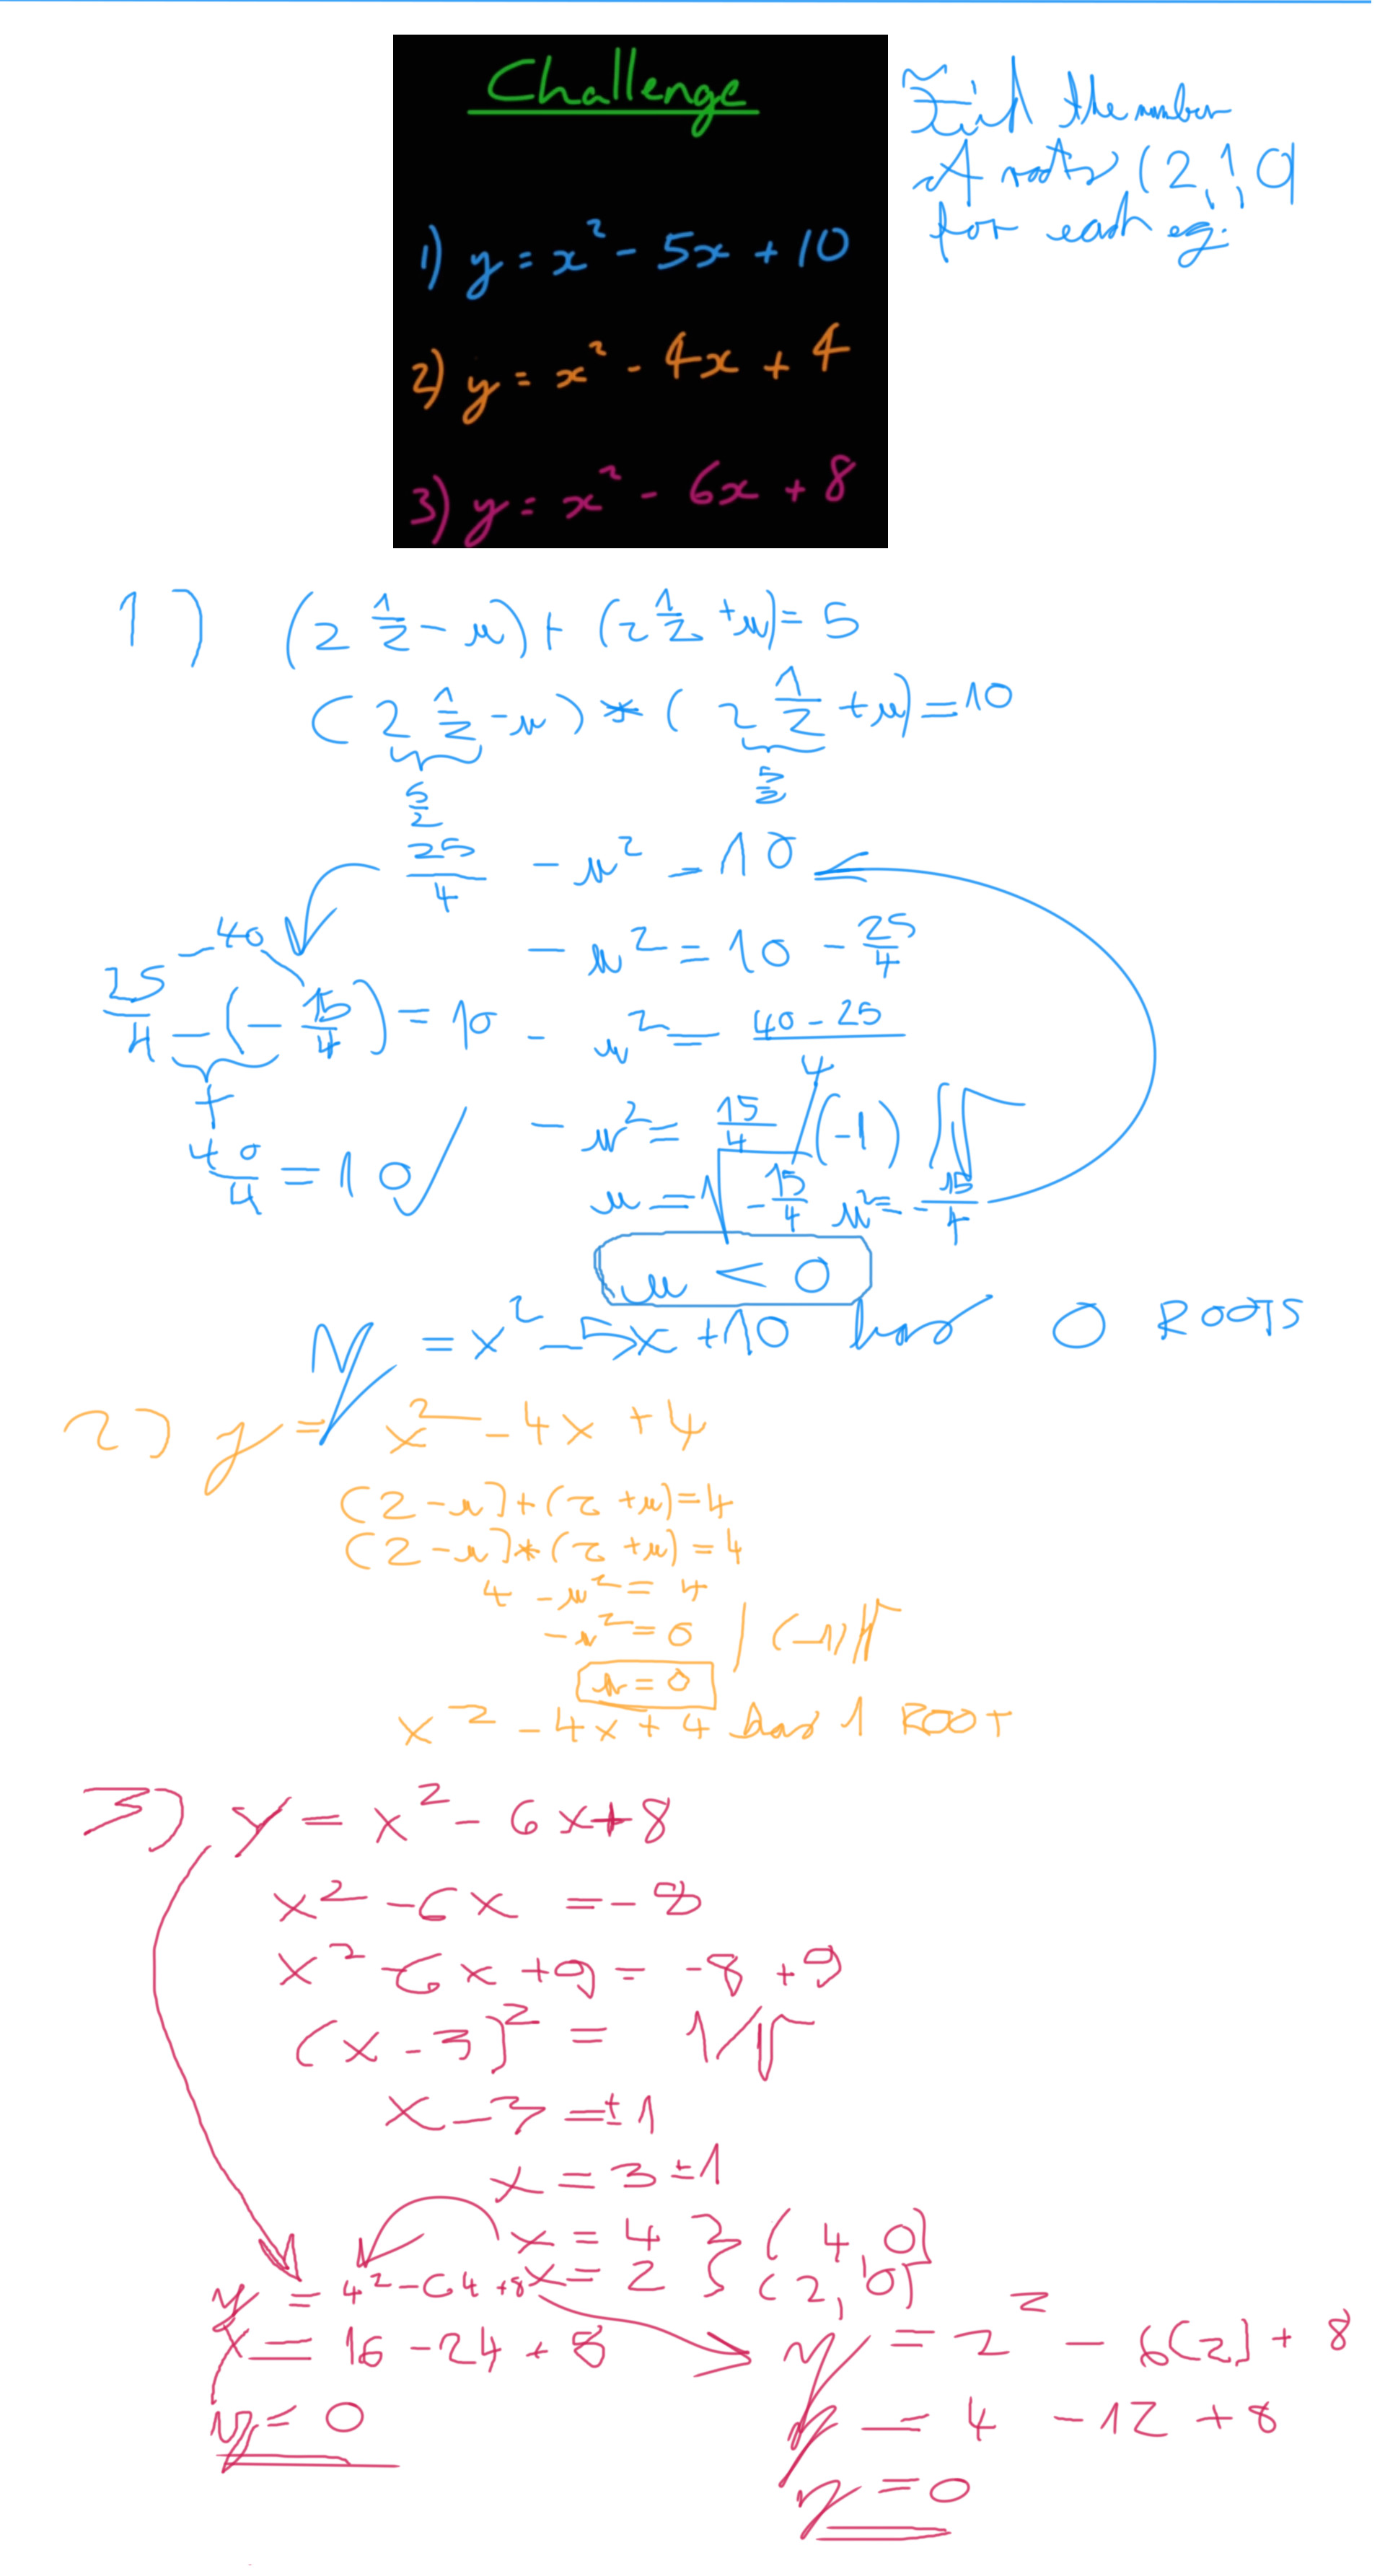 Challenge
1) y = x² - 5x + 10
2) y = x² - 4x + 4
3) y = x² - 6x + 8
Find the number
of roots (2,1,0)
for each eq.
1) (2 1/2 - u) + (2 1/2 + u) = 5
(2 1/2 - u) * (2 1/2 + u) = 10
5/2 5/2
25/4 - u² = 10
- u² = 10 - 25/4
- u² = (40 - 25)/4
- u² = 15/4 /(-1) /√
u = √-15/4 u² = -15/4
u < 0
-40
25/4 - (-15/4) = 10
+
40/4 = 10 ✓
y = x² - 5x + 10 has 0 ROOTS
2) y = x² - 4x + 4
(2 - u) + (2 + u) = 4
(2 - u) * (2 + u) = 4
4 - u² = 4
- u² = 0 / (-1) /√
u = 0
x² - 4x + 4 has 1 ROOT
3) y = x² - 6x + 8
x² - 6x = - 8
x² - 6x + 9 = - 8 + 9
(x - 3)² = 1 /√
x - 3 = ± 1
x = 3 ± 1
x = 4 } (4, 0)
x = 2 } (2, 0)
y = 4² - 6 4 + 8
= 16 - 24 + 8
y = 0
y = 2² - 6(2) + 8
y = 4 - 12 + 8
y = 0